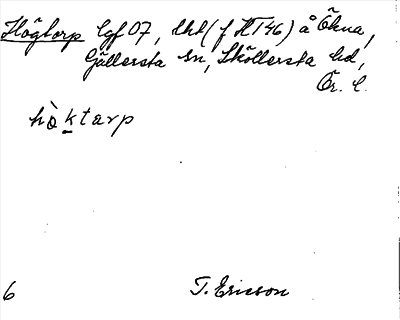 Högtorp lgf 07, lht (f HT46) å Ökna,
Gällersta sn, Sköllersta hd,
Ör. l.
hòktarp
6 T. Ericson